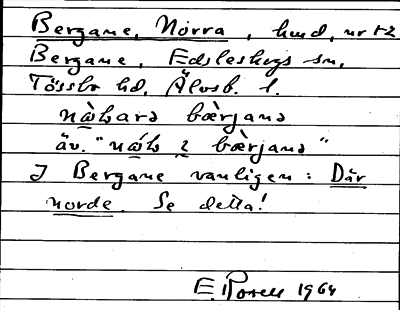 Bergane, Norra, hmd, nr 1-2
Bergane, Edsleskogs sn,
Tössbo hd, Älvsb. l.
bæ̀rjana
äv. " bæ̀rjana"
I Bergane vanligen: Där
norde. Se detta!
E. Rosell 1964